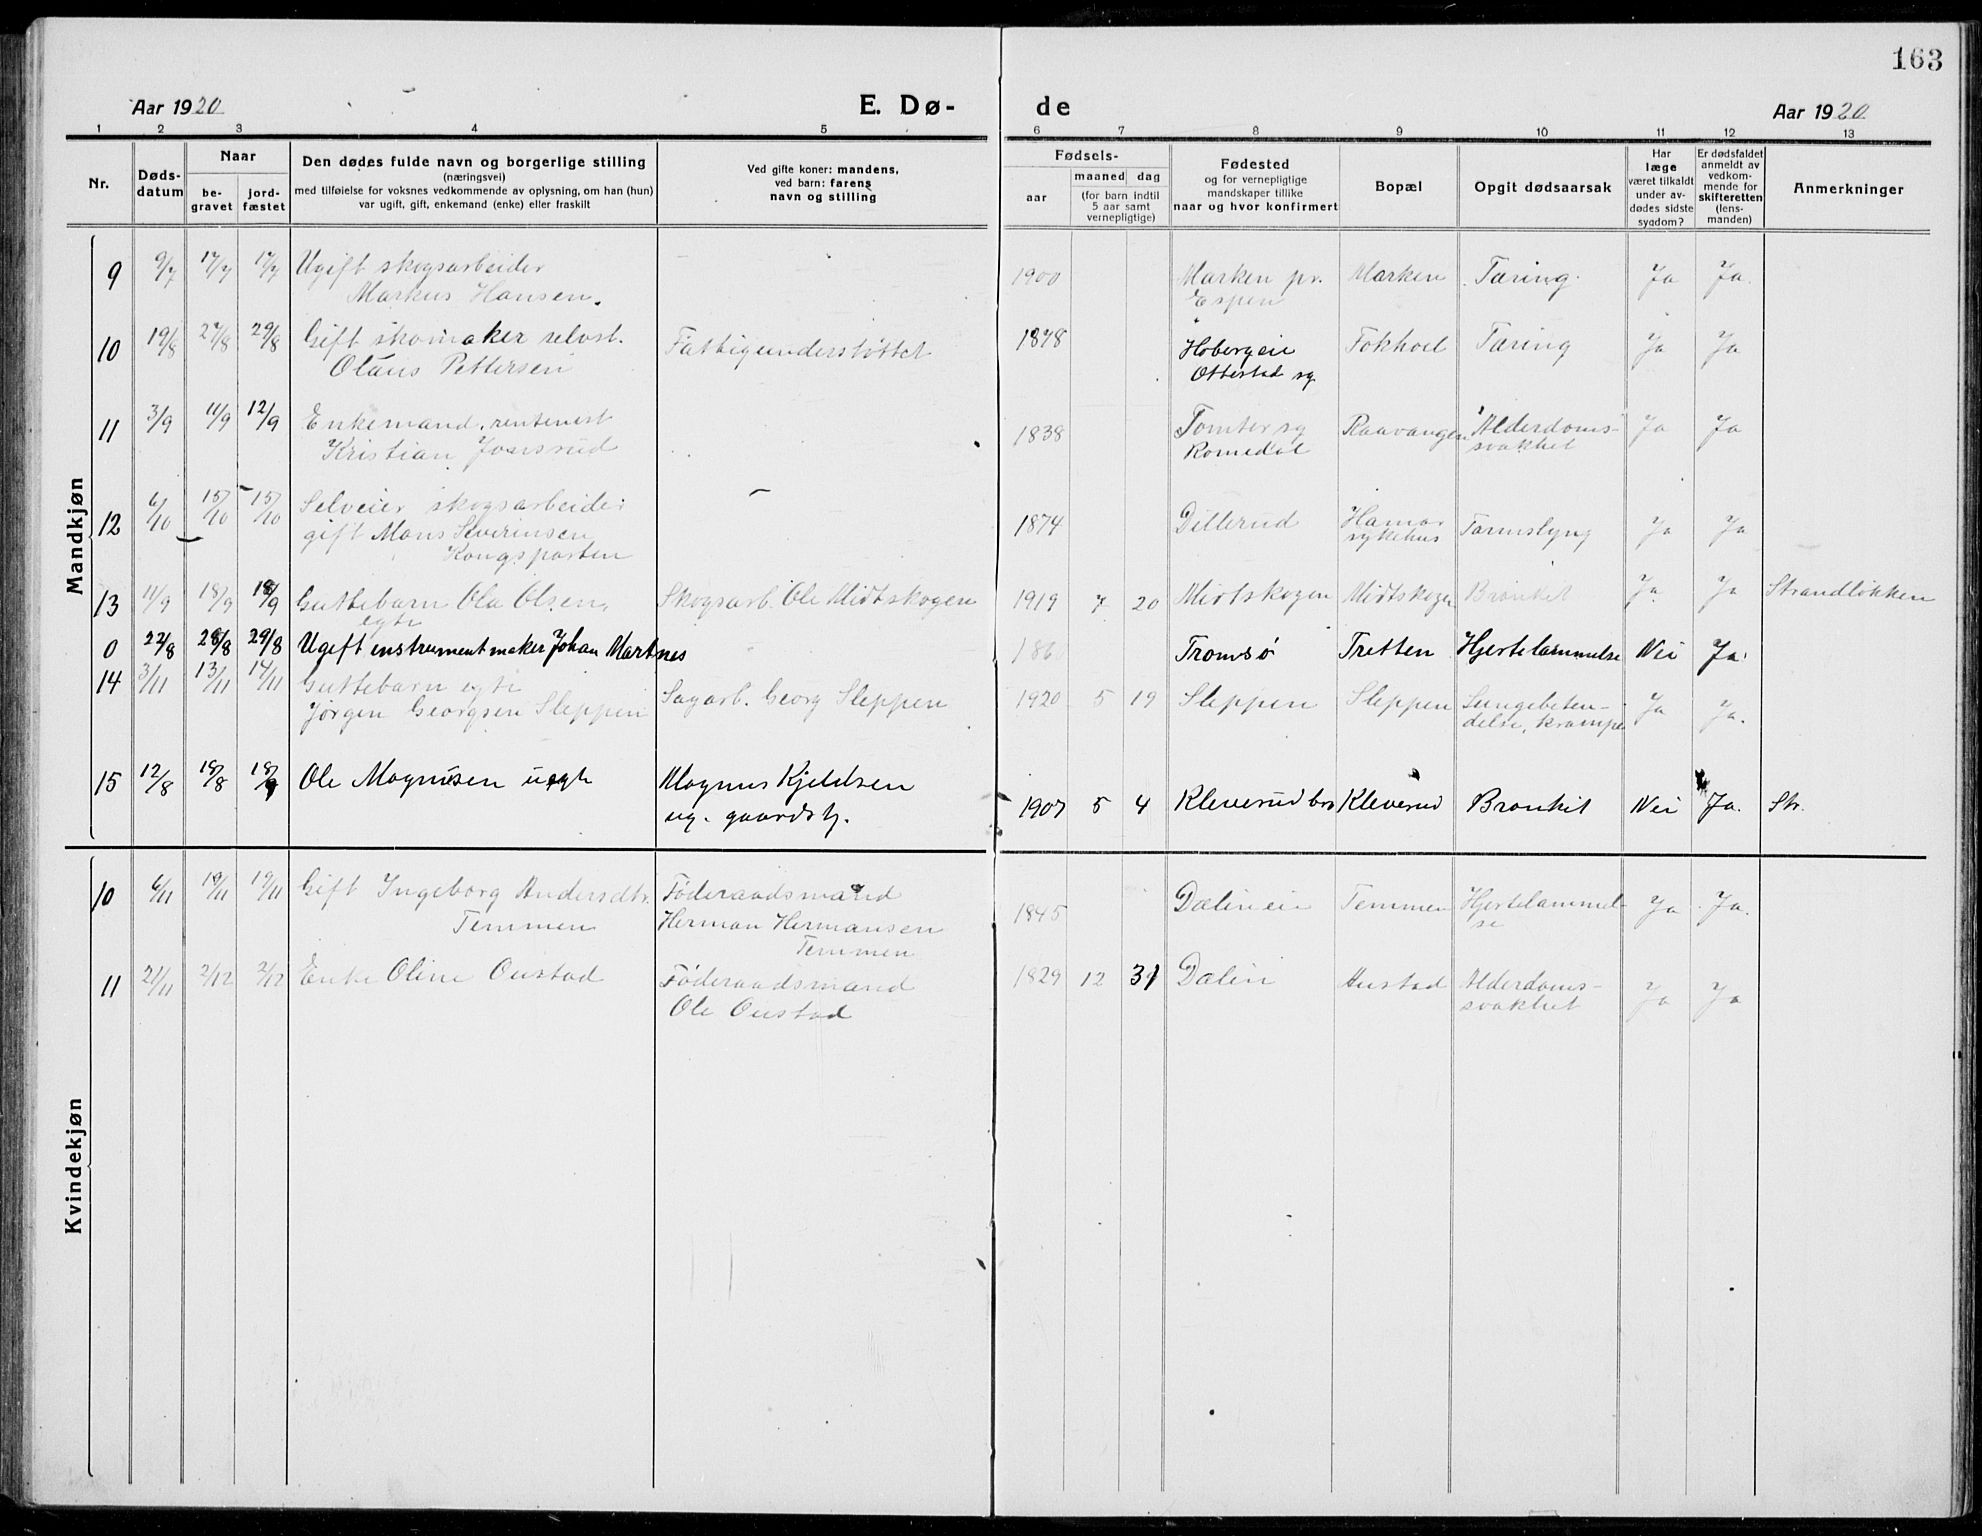 163
Aar 1920
E. Dø-
de
Aar 1920
1 2 3 4 5 6 7 8 9 10 11 12 13
Nr.
Døds-
datum
Naar
be-
gravet
jord-
fæstet
Den dødes fulde navn og borgerlige stilling
(næringsvei)
med tilføielse for voksnes vedkommende av oplysning, om han (hun)
var ugift, gift, enkemand (enke) eller fraskilt
Ved gifte koner: mandens,
ved barn: farens
navn og stilling
Fødsels-
aar
maaned dag
(for barn indtil
5 aar samt
vernepligtige)
Fødested
og for vernepligtige
mandskaper tillike
naar og hvor konfirmert
Bopæl
Opgit dødsaarsak
Har
læge
været tilkaldt
under av-
dødes sidste
sygdom?
Er dødsfaldet
anmeldt av
vedkom-
mende for
skifteretten
(lens-
manden)
Anmerkninger
Mandkjøn
9 9/7 17/7 17/7 Ugift skogsarbeider
Markus Hansen.
1900 Marken pr.
Espen
Marken Tæring. Ja Ja.
10 19/8 27/8 29/8 Gift skomaker selvst.
Olaus Pettersen
Fattigunderstøttet
1878 Hobergeie
Ottestad sg.
Fokhoel Tæring Ja Ja
11 3/9 11/9 12/9 Enkemand, rentenist
Kristian Joensrud
1838 Tomter sg
Romedal
Raavangen Alderdoms-
svakhet
Ja Ja
12 6/10 15/10 15/10 Selveier skogsarbeider
gift Mons Severinsen
Kongsparten
1874 Dillerud Hamar
sykehus
Tarmslyng Ja Ja
13 11/9 18/9 18/9 Guttebarn Ola Olsen,
egte
Skogsarb. Ole Midtskogen
1919 7 20 Midtskogen Midtskogen Bronkit Ja Ja Strandløkken
0 22/8 28/8 29/8 Ugift instrumentmaker Johan Martnes
Tromsø Tretten Hjertelammelse Nei Ja.
14 3/11 13/11 14/11 Guttebarn egte
Jørgen Georgsen Sleppen
Sagarb. Georg Sleppen
1920 5 19 Sleppen Sleppen Lungebeten-
delse, krampe
Ja Ja.
15 12/8 18/8 18/9 Ole Magnusen uegte
Magnus Kjeldsen
ug. gaardsg.
1907 5 4 Kleverud bro Kleverud Bronkit Nei Ja. Str.
Kvindekjøn
10 6/11 19/11 19/11 Gift Ingeborg Andersdtr.
Temmen
Føderaadsmand
Herman Hermansen
Temmen
1845 Dælineie Temmen Hjertelammel-
se
Ja Ja.
11 21/11 2/12 2/12 Enke Oline Oustad
Føderaadsmand
Ole Oustad
1829 12 31 Dælin Austad Alderdoms-
svakhet
Ja Ja